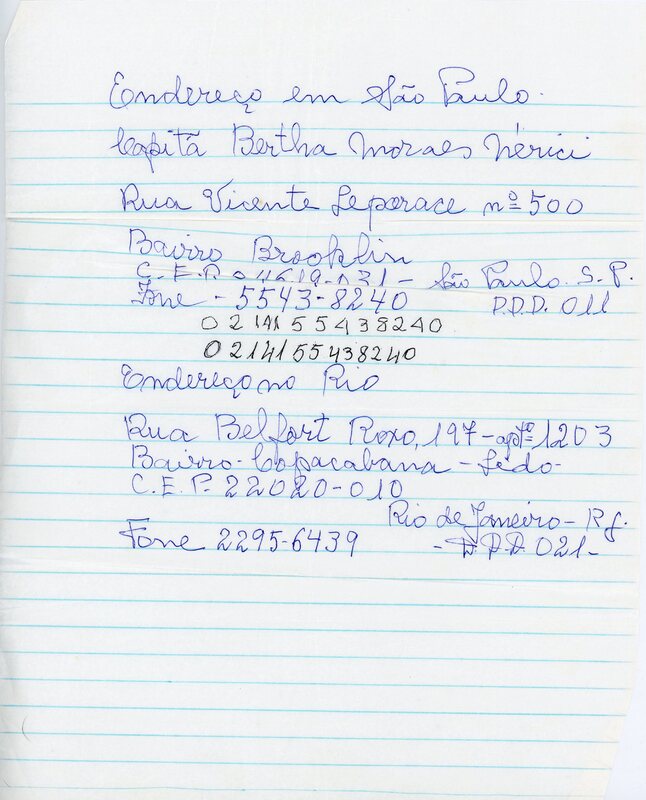 Endereço em São Paulo.
Capitã Bertha Moraes Nérici
Rua Vicente Leporace nº 500
Bairro Brooklin
C.E.P. 04619-031 - São Paulo. S.P.
Fone - 5543-8240 D.D.D. 011
0 21 41 55438240
0 2141 55438240
Endereço no Rio
Rua Belfort Roxo, 197 - aptº 1203
Bairro - Copacabana - Lido -
C.E.P. 22020-010
Rio de Janeiro - Rj.
Fone 2295-6439 - D.D.D. 021 -